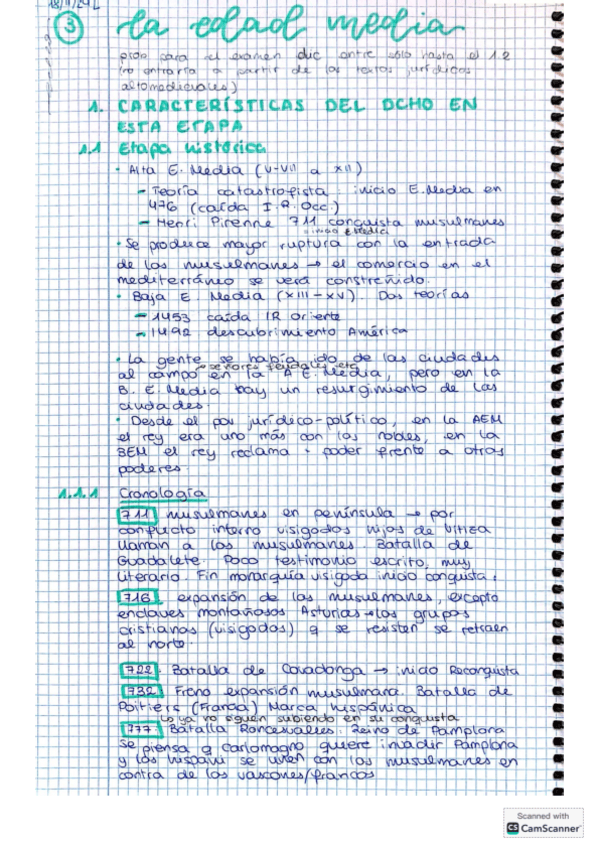 18/11/24
3 La edad media
para el examen dic entre sólo hasta el 1.2
(no entraría a partir de los textos jurídicos
altomedievales)
1. CARACTERÍSTICAS DEL DCHO EN
ESTA ETAPA
1.1 Etapa histórica
· Alta E. Media (V-VII a XII)
- Teoría catastrofista: inicio E. Media en
476 (caída I.R. Occ.)
- Henri Pirenne 711 conquista musulmanes
inicio E Media
· Se produce mayor ruptura con la entrada
de los musulmanes → el comercio en el
mediterráneo se verá constreñido.
· Baja E. Media (XIII-XV). Dos teorías
- 1453 caída IR oriente
- 1492 descubrimiento América
· La gente se había ido de las ciudades
→ señores feudales etc
al campo en la A E. Media, pero en la
B. E. Media hay un resurgimiento de las
ciudades.
· Desde el pov jurídico-político, en la AEM
el rey era uno más con los nobles, en la
BEM el rey reclama + poder frente a otros
poderes.
1.1.1 Cronología
711 musulmanes en península → por
conflicto interno visigodos hijos de Vitiza
llaman a los musulmanes. Batalla de
Guadalete. Poco testimonio escrito, muy
literario. Fin monarquía visigoda inicio conquista.
716 expansión de los musulmanes, excepto
enclaves montañosos Asturias → los grupos
cristianos (visigodos) q se resisten se retraen
al norte.
722. Batalla de Covadonga → inicio Reconquista
732 Freno expansión musulmana. Batalla de
Poitiers (Francia) Marca hispánica
↳ ya no siguen subiendo en su conquista
777. Batalla Roncesvalles. Reino de Pamplona
Se piensa q Carlomagno quiere invadir Pamplona
y los hispani se unen con los musulmanes en
contra de los vascones/francos
Scanned with
CS CamScanner